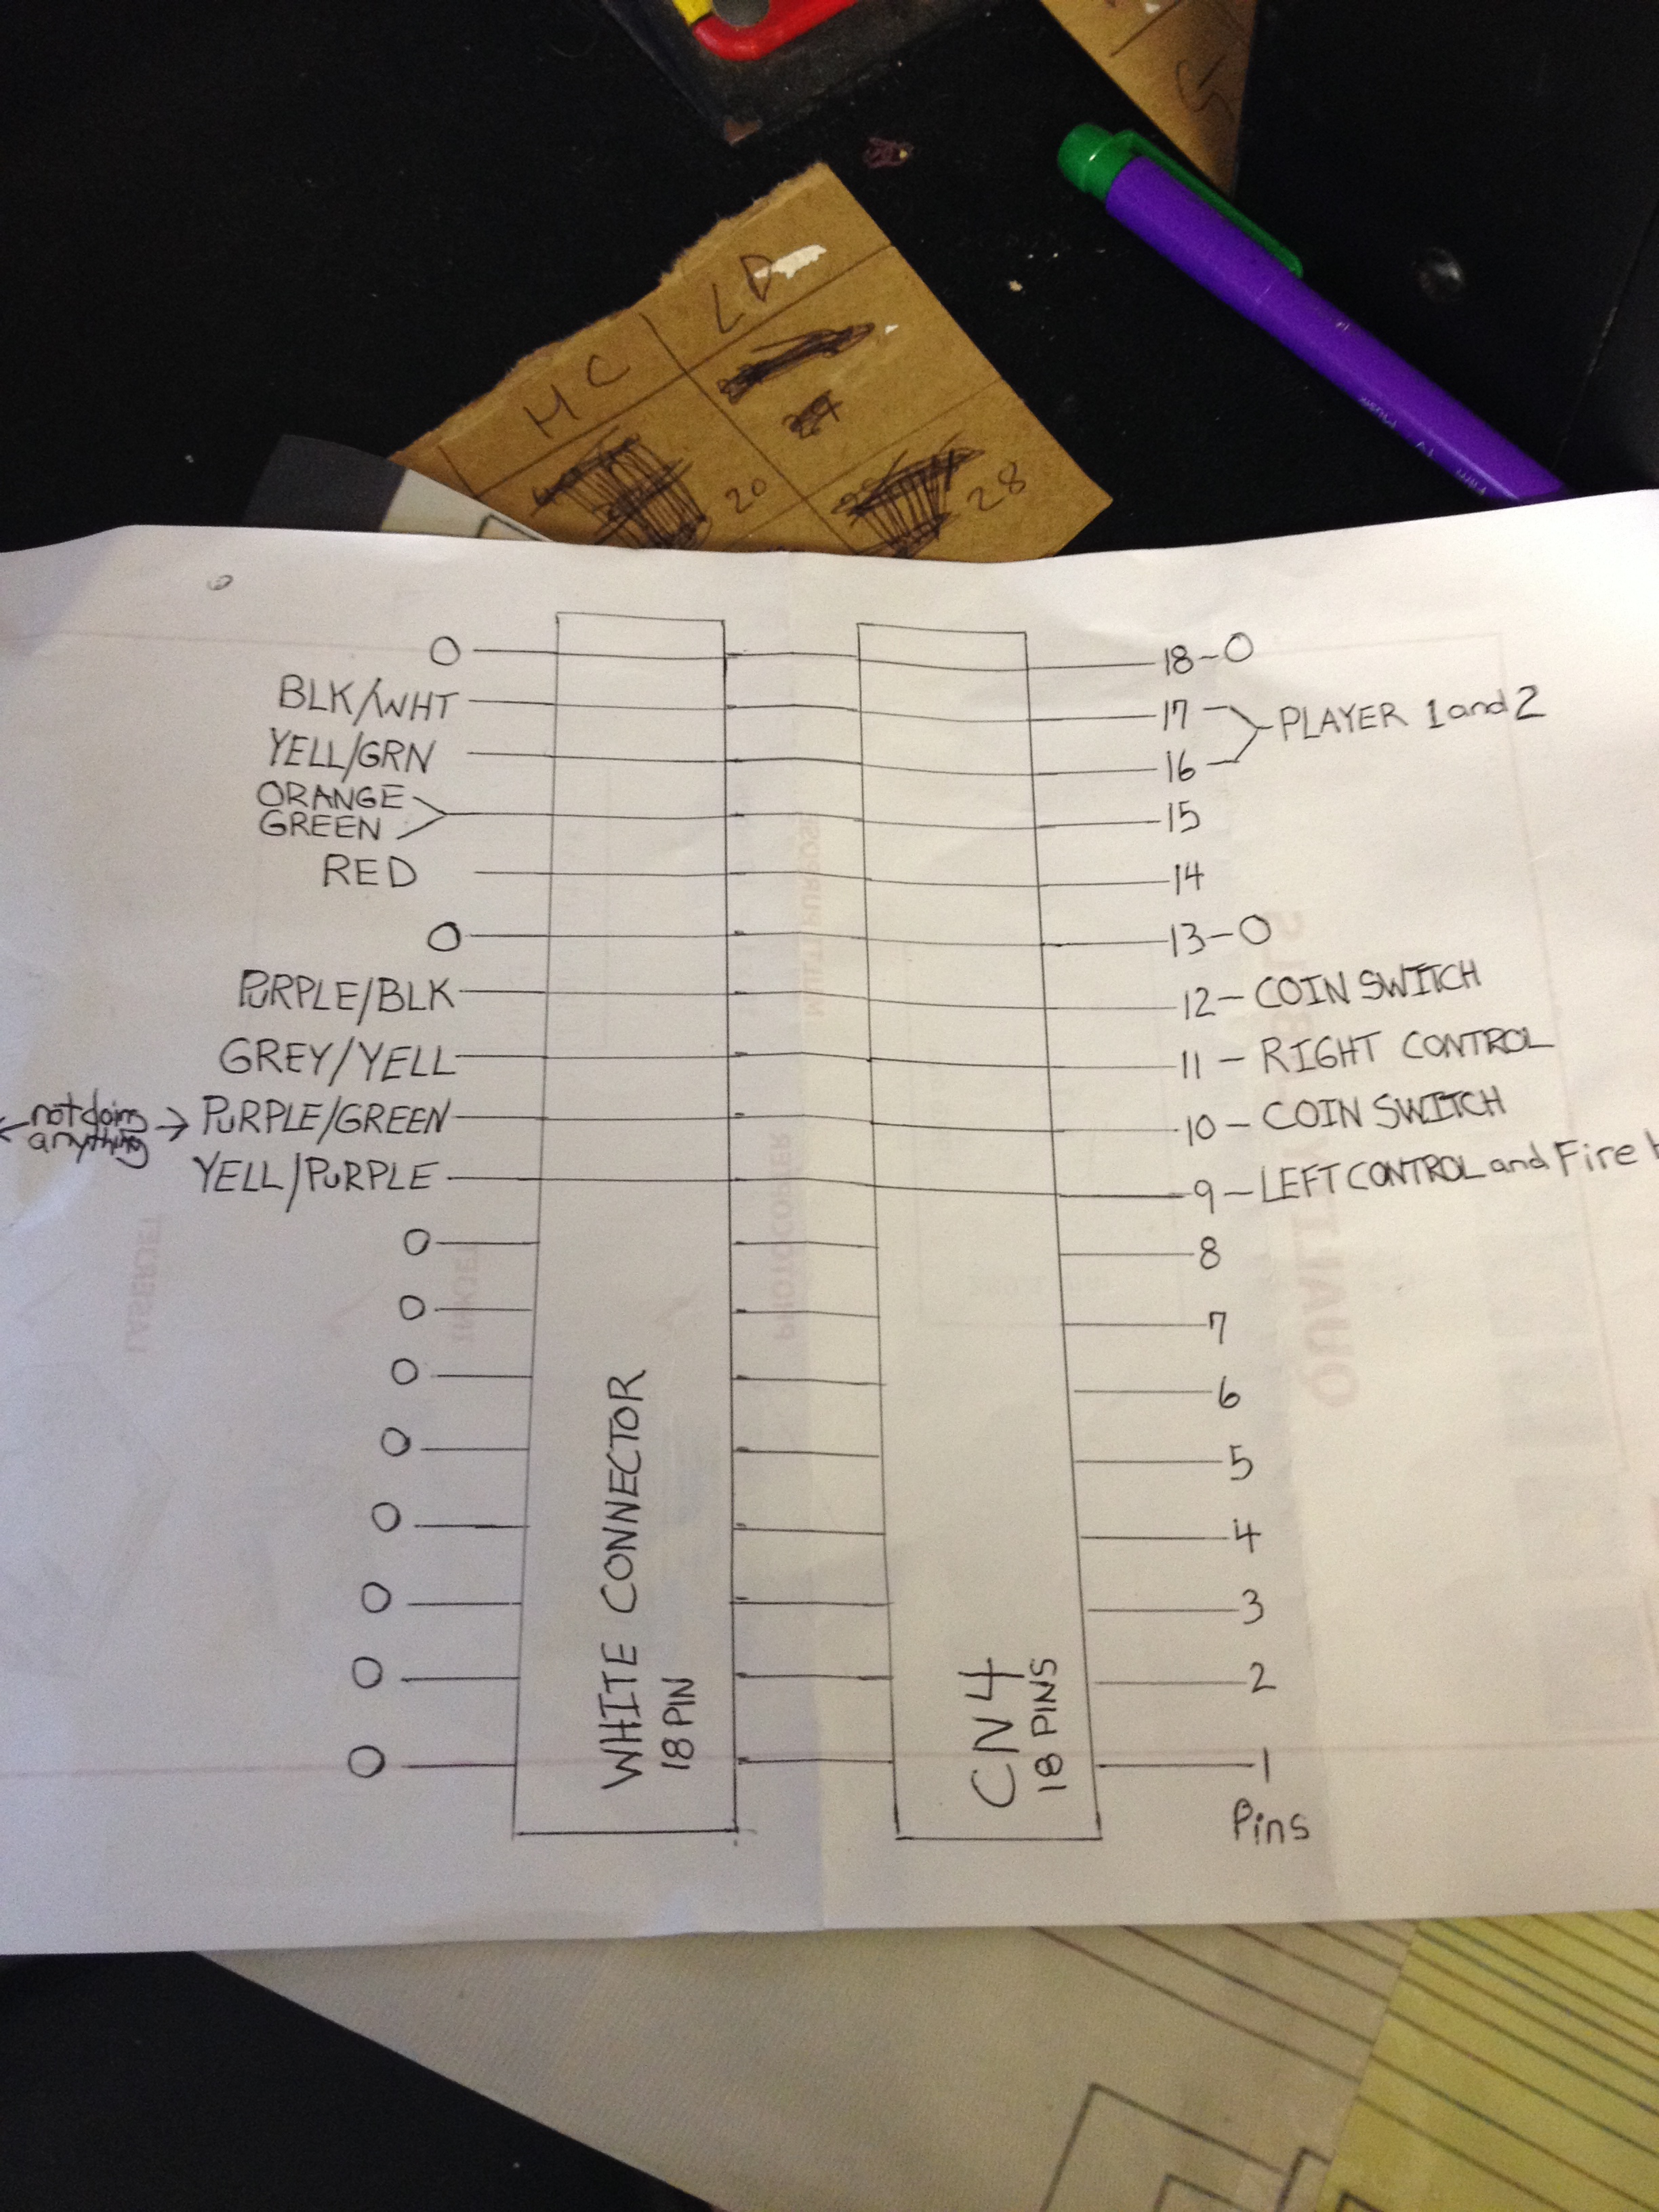 LD
MC
20
28
O 18-O
BLK/WHT 17 PLAYER 1 and 2
YELL/GRN 16
ORANGE
GREEN 15
RED 14
O 13-O
PURPLE/BLK 12-COIN SWITCH
GREY/YELL 11-RIGHT CONTROL
not doing
anything PURPLE/GREEN 10-COIN SWITCH
YELL/PURPLE 9-LEFT CONTROL and Fire
O 8
O 7
O 6
O 5
O 4
O 3
O 2
O 1
WHITE CONNECTOR
18 PIN
CN4
18 PINS
Pins